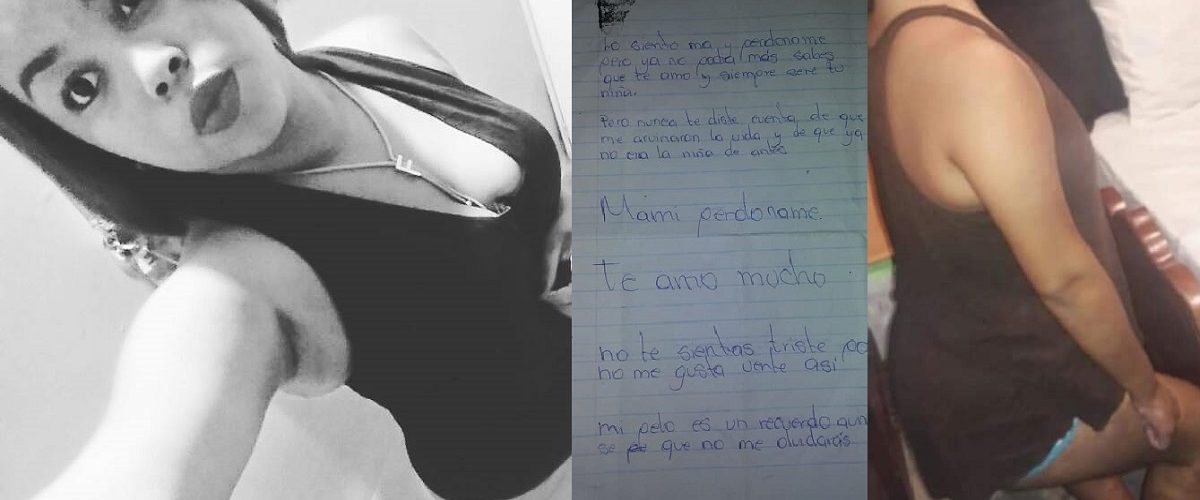 E
Lo siento ma y perdoname
pero ya no podia más sabes
que te amo y siempre sere tu
niña.
Pero nunca te diste cuenta de que
me arruinaron la vida y de que ya
no era la niña de antes
Mami perdoname.
Te amo mucho.
no te sientas triste po
no me gusta verte asi
mi pelo es un recuerdo aun
se que no me olvidarás